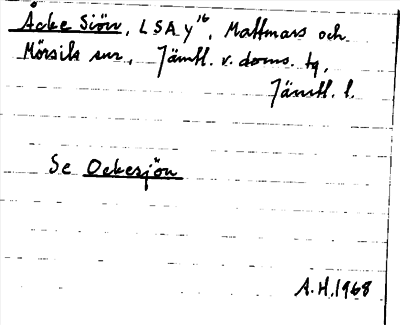 Åcke Siön, LSA y¹⁶, Mattmars och
Mörsils snr, Jämtl. v. doms. tg,
Jämtl. l.
Se Ockesjön
A.H. 1968